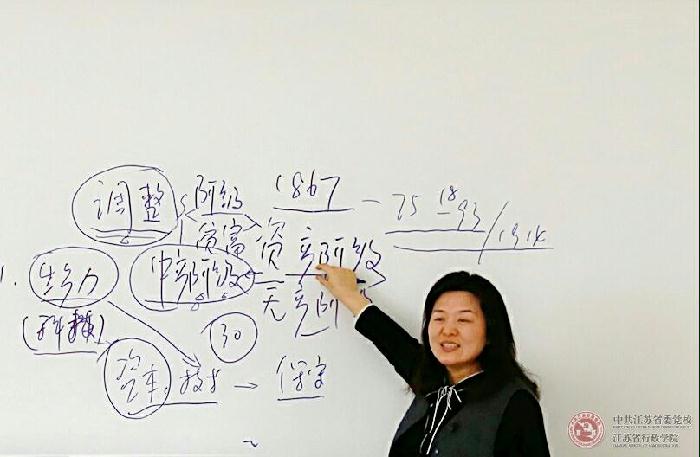 调整 阶级 1867 - 75 18-93/191k
贫富 资产阶级
1. 生产力 中产阶级 无产阶级
(科技)
30
汽车 技术 → 保守
中共江苏省委党校
江苏省行政学院